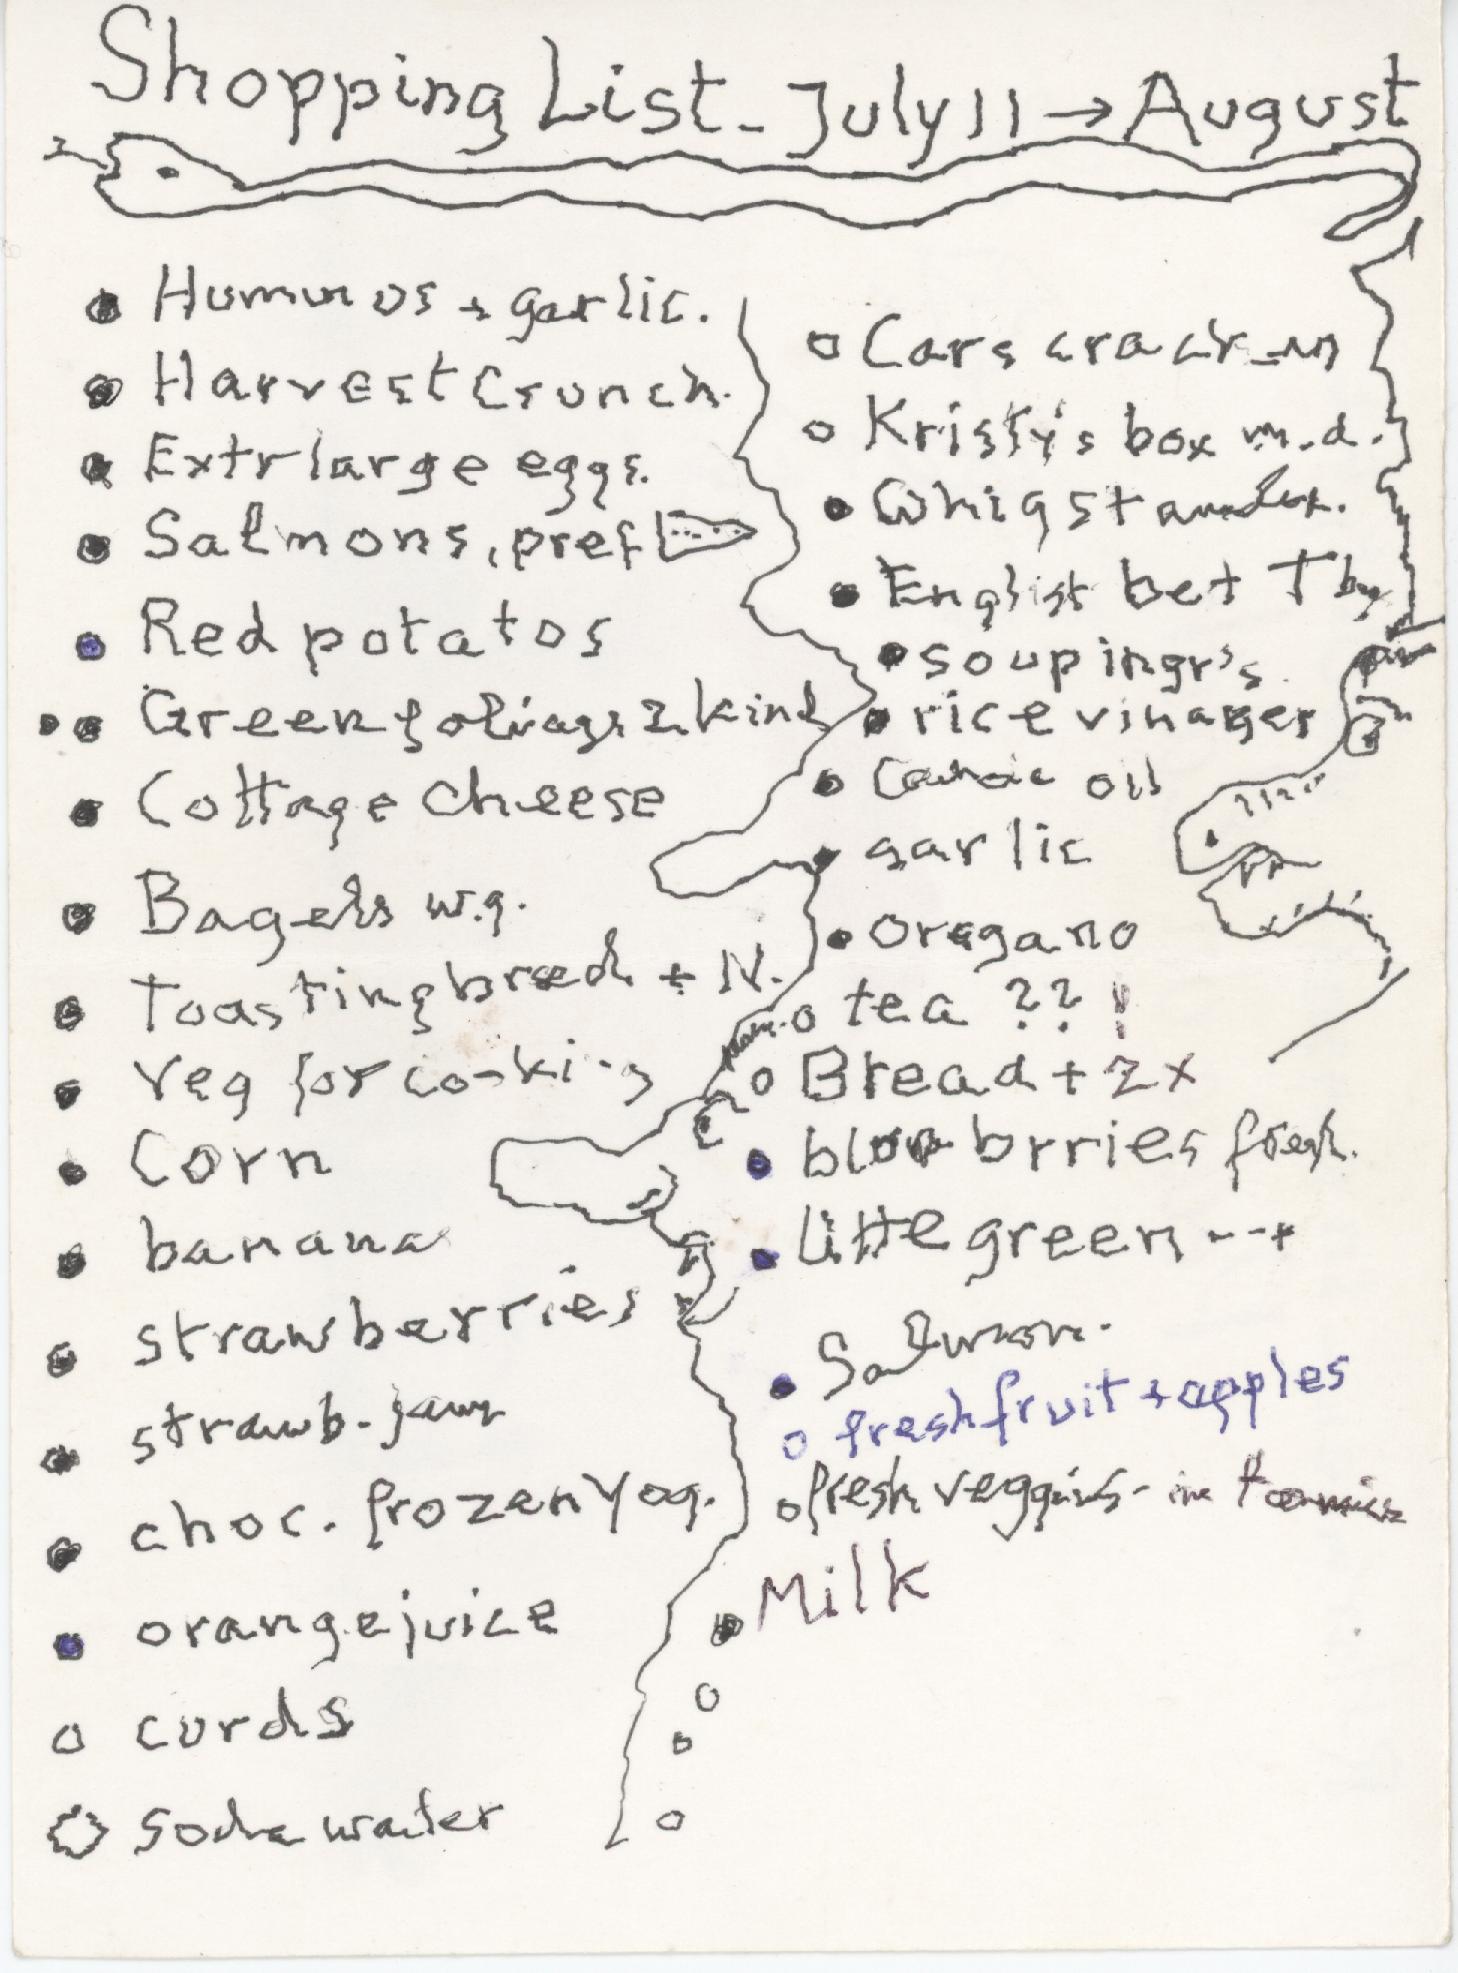 Shopping List - July 11 → August
Hummos + garlic.
Harvest Crunch.
Extr large eggs.
Salmons, pref
Red potatos
Green foliags 2 kind
Cottage cheese
Bagels w.g.
Toasting bread + N.
Veg for cooking
Corn
banana
strawberries
strawb. jam
choc. frozen Yog.
orange juice
curds
soda water
Cars
Kristy's box m.d.
Whig standar.
English bet
soup ingr's
rice vinager
oil
garlic
oregano
tea ??!
Bread + 2x
brries fresh.
little green --+
Salmon.
fresh fruit + apples
fresh veggies -
Milk